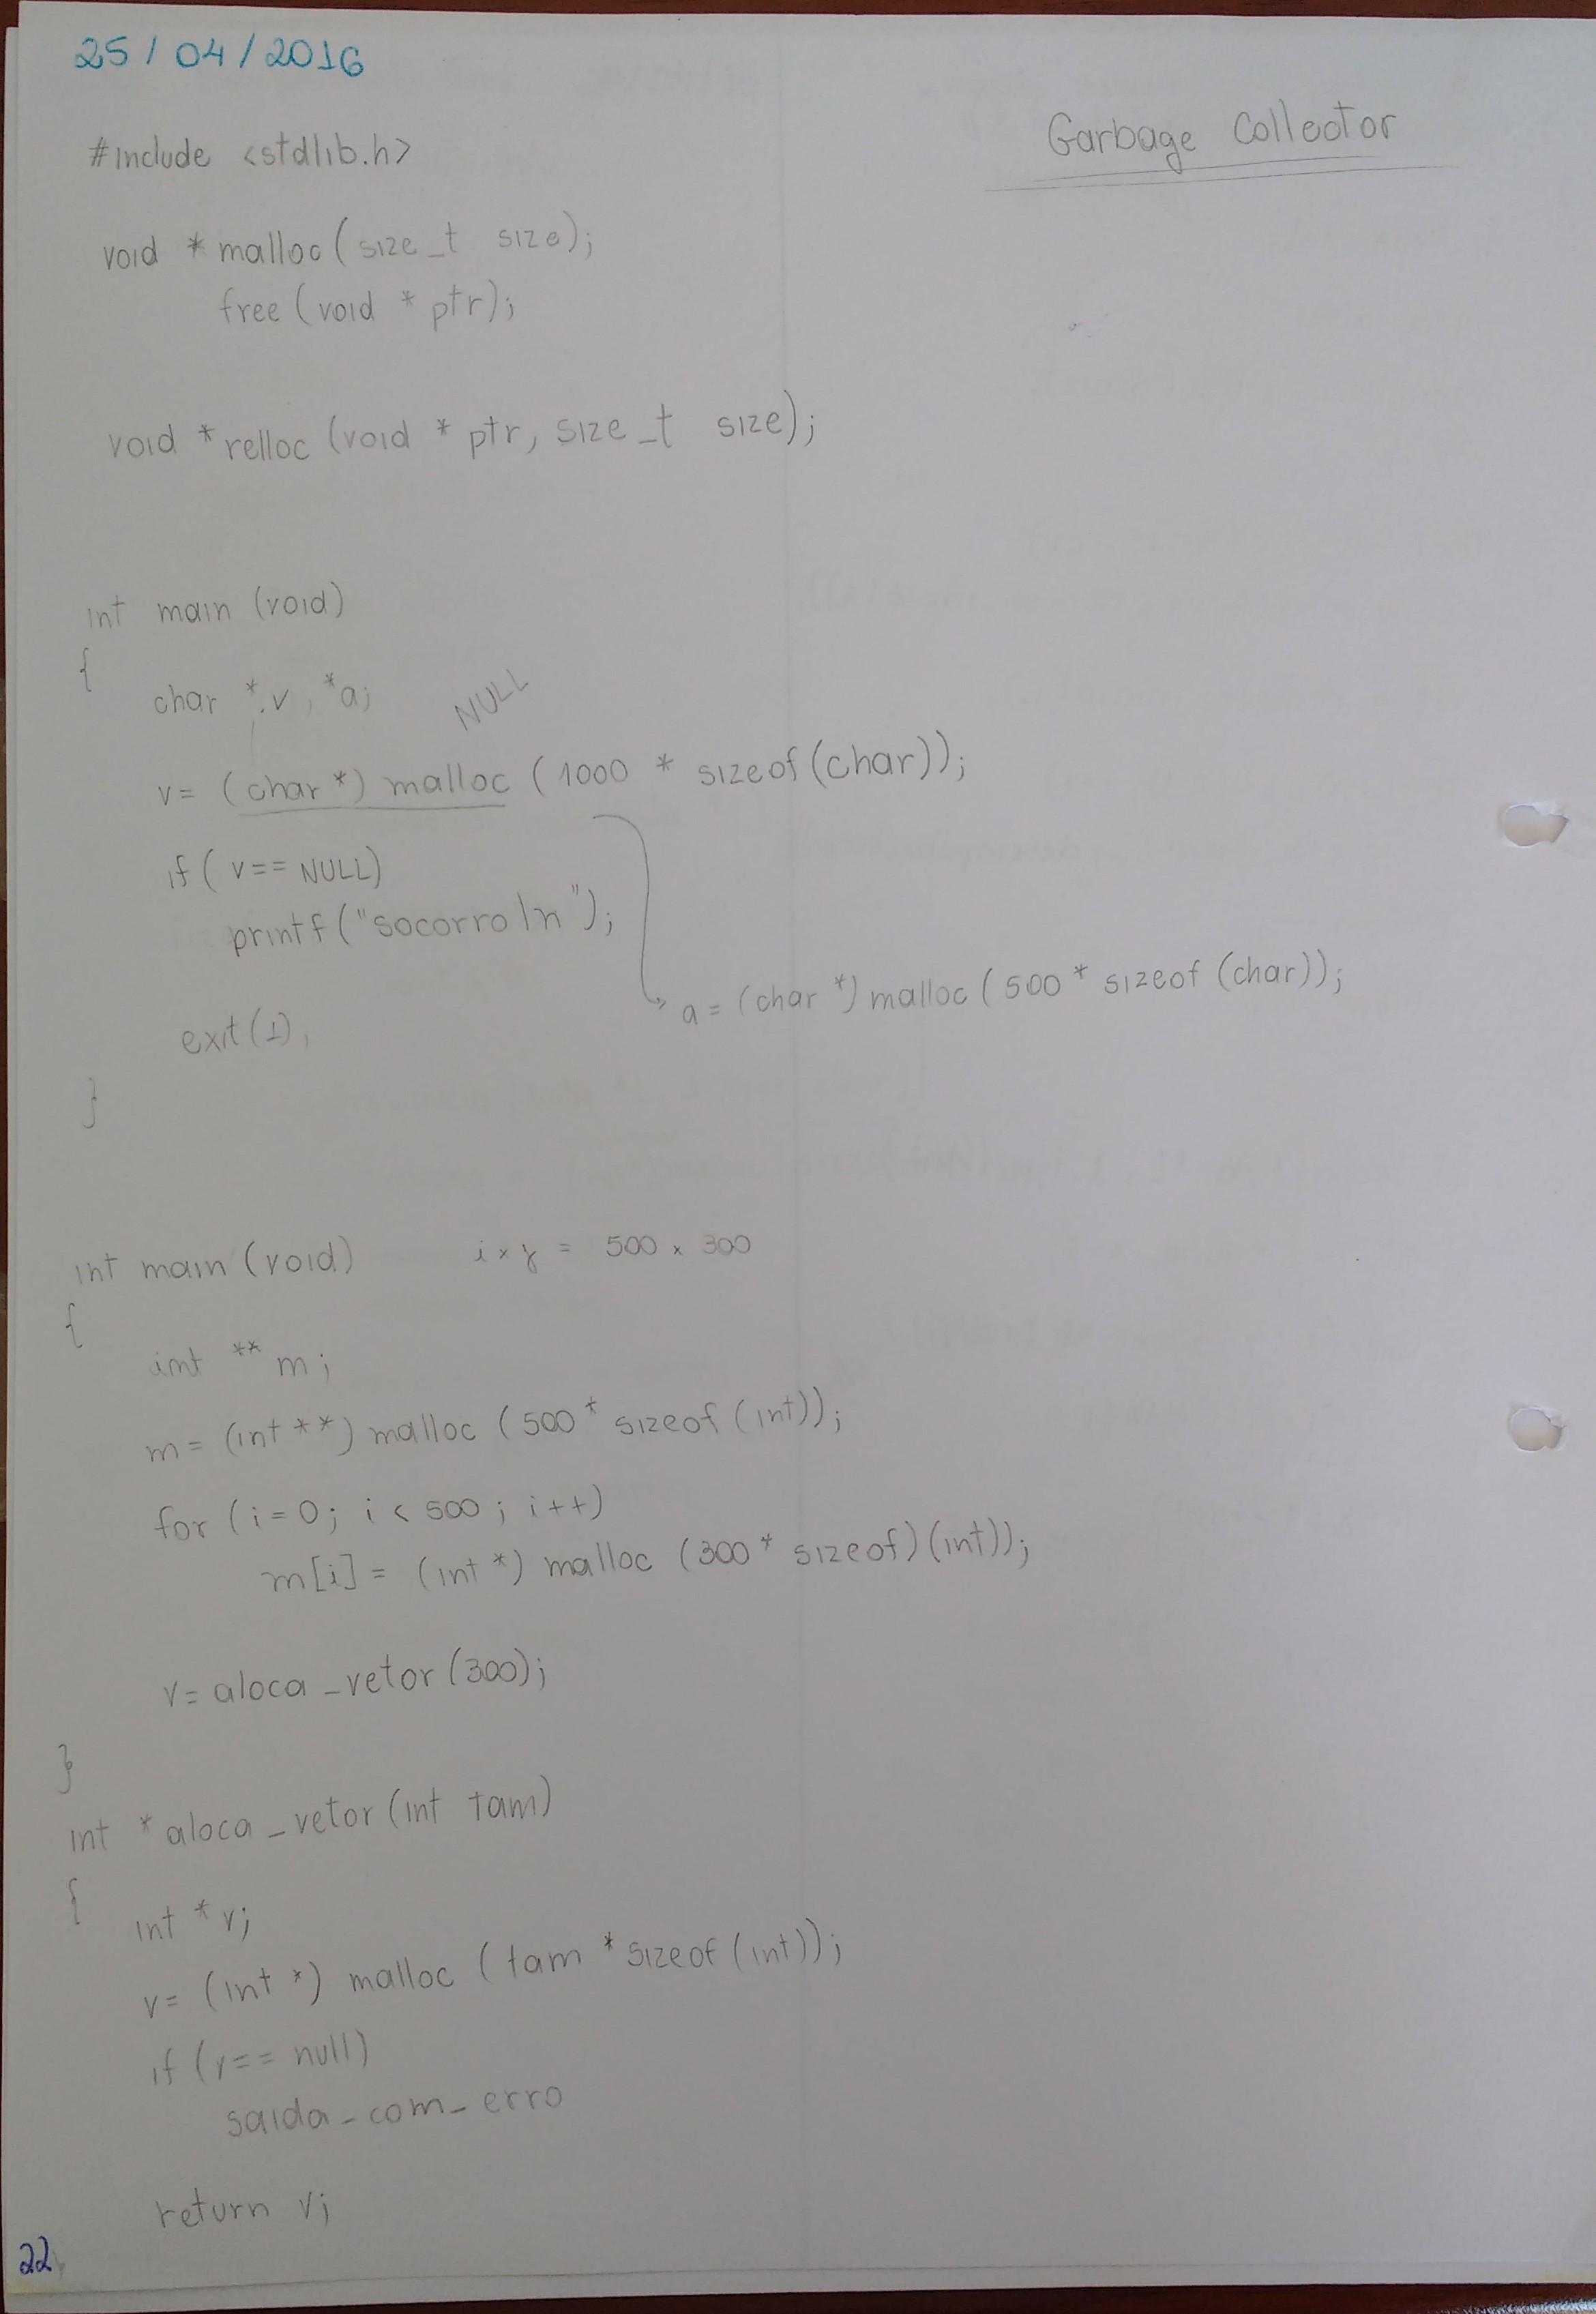 25/04/2016
Garbage Collector
#include <stdlib.h>
void * malloc (size_t size);
free (void * ptr);
void * relloc (void * ptr, size_t size);
int main (void)
{
char *v, *a;
NULL
v = (char *) malloc (1000 * sizeof (char));
if (v == NULL)
printf ("socorro \n");
a = (char *) malloc (500 * sizeof (char));
exit (1),
}
int main (void) i x j = 500 x 300
{
int ** m;
m = (int **) malloc (500 * sizeof (int));
for (i = 0; i < 500; i++)
m[i] = (int *) malloc (300 * sizeof) (int));
v = aloca_vetor (300);
}
int * aloca_vetor (int tam)
{
int * v;
v = (int *) malloc (tam * sizeof (int));
if (v == null)
saida_com_erro
return v;
22